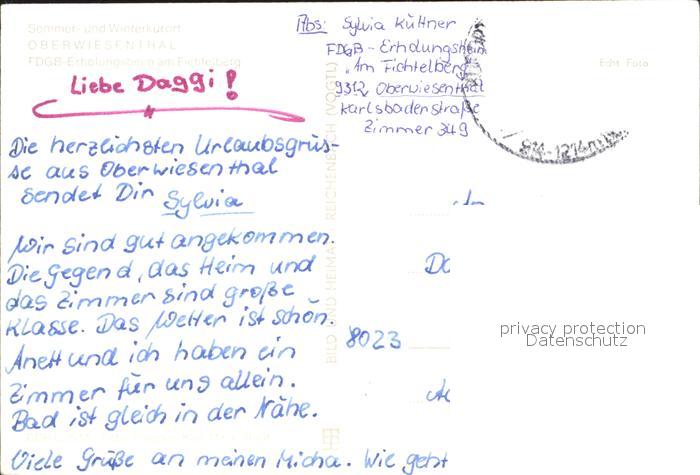 Sommer- und Winterkurort
OBERWIESENTHAL
FDGB-Erholungsheim am Fichtelberg
Liebe Daggi!
Die herzlichsten Urlaubsgrüs-
se aus Oberwiesenthal
sendet Dir Sylvia
Wir sind gut angekommen.
Die Gegend, das Heim und
das Zimmer sind große
Klasse. Das Wetter ist schön.
Anett und ich haben ein
Zimmer für uns allein.
Bad ist gleich in der Nähe.
Viele Grüße an meinen Micha. Wie geht
BILD UND HEIMAT REICHENBACH (VOGTL)
Abs: Sylvia Küttner
FDGB-Erholungsheim
"Am Fichtelberg
9312 Oberwiesenthal
Karlsbaderstraße
Zimmer 349
Echt Foto
An
Da
8023
privacy protection
Datenschutz